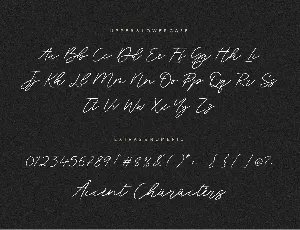 UPPER&LOWERCASE
Aa Bb Cc Dd Ee Ff Gg Hh Ii
Jj Kk Ll Mm Nn Oo Pp Qq Rr Ss
Tt Uu Vv Ww Xx Yy Zz
EXTRAS&NUMERIC
0123456789!#$%&
Accent Characters